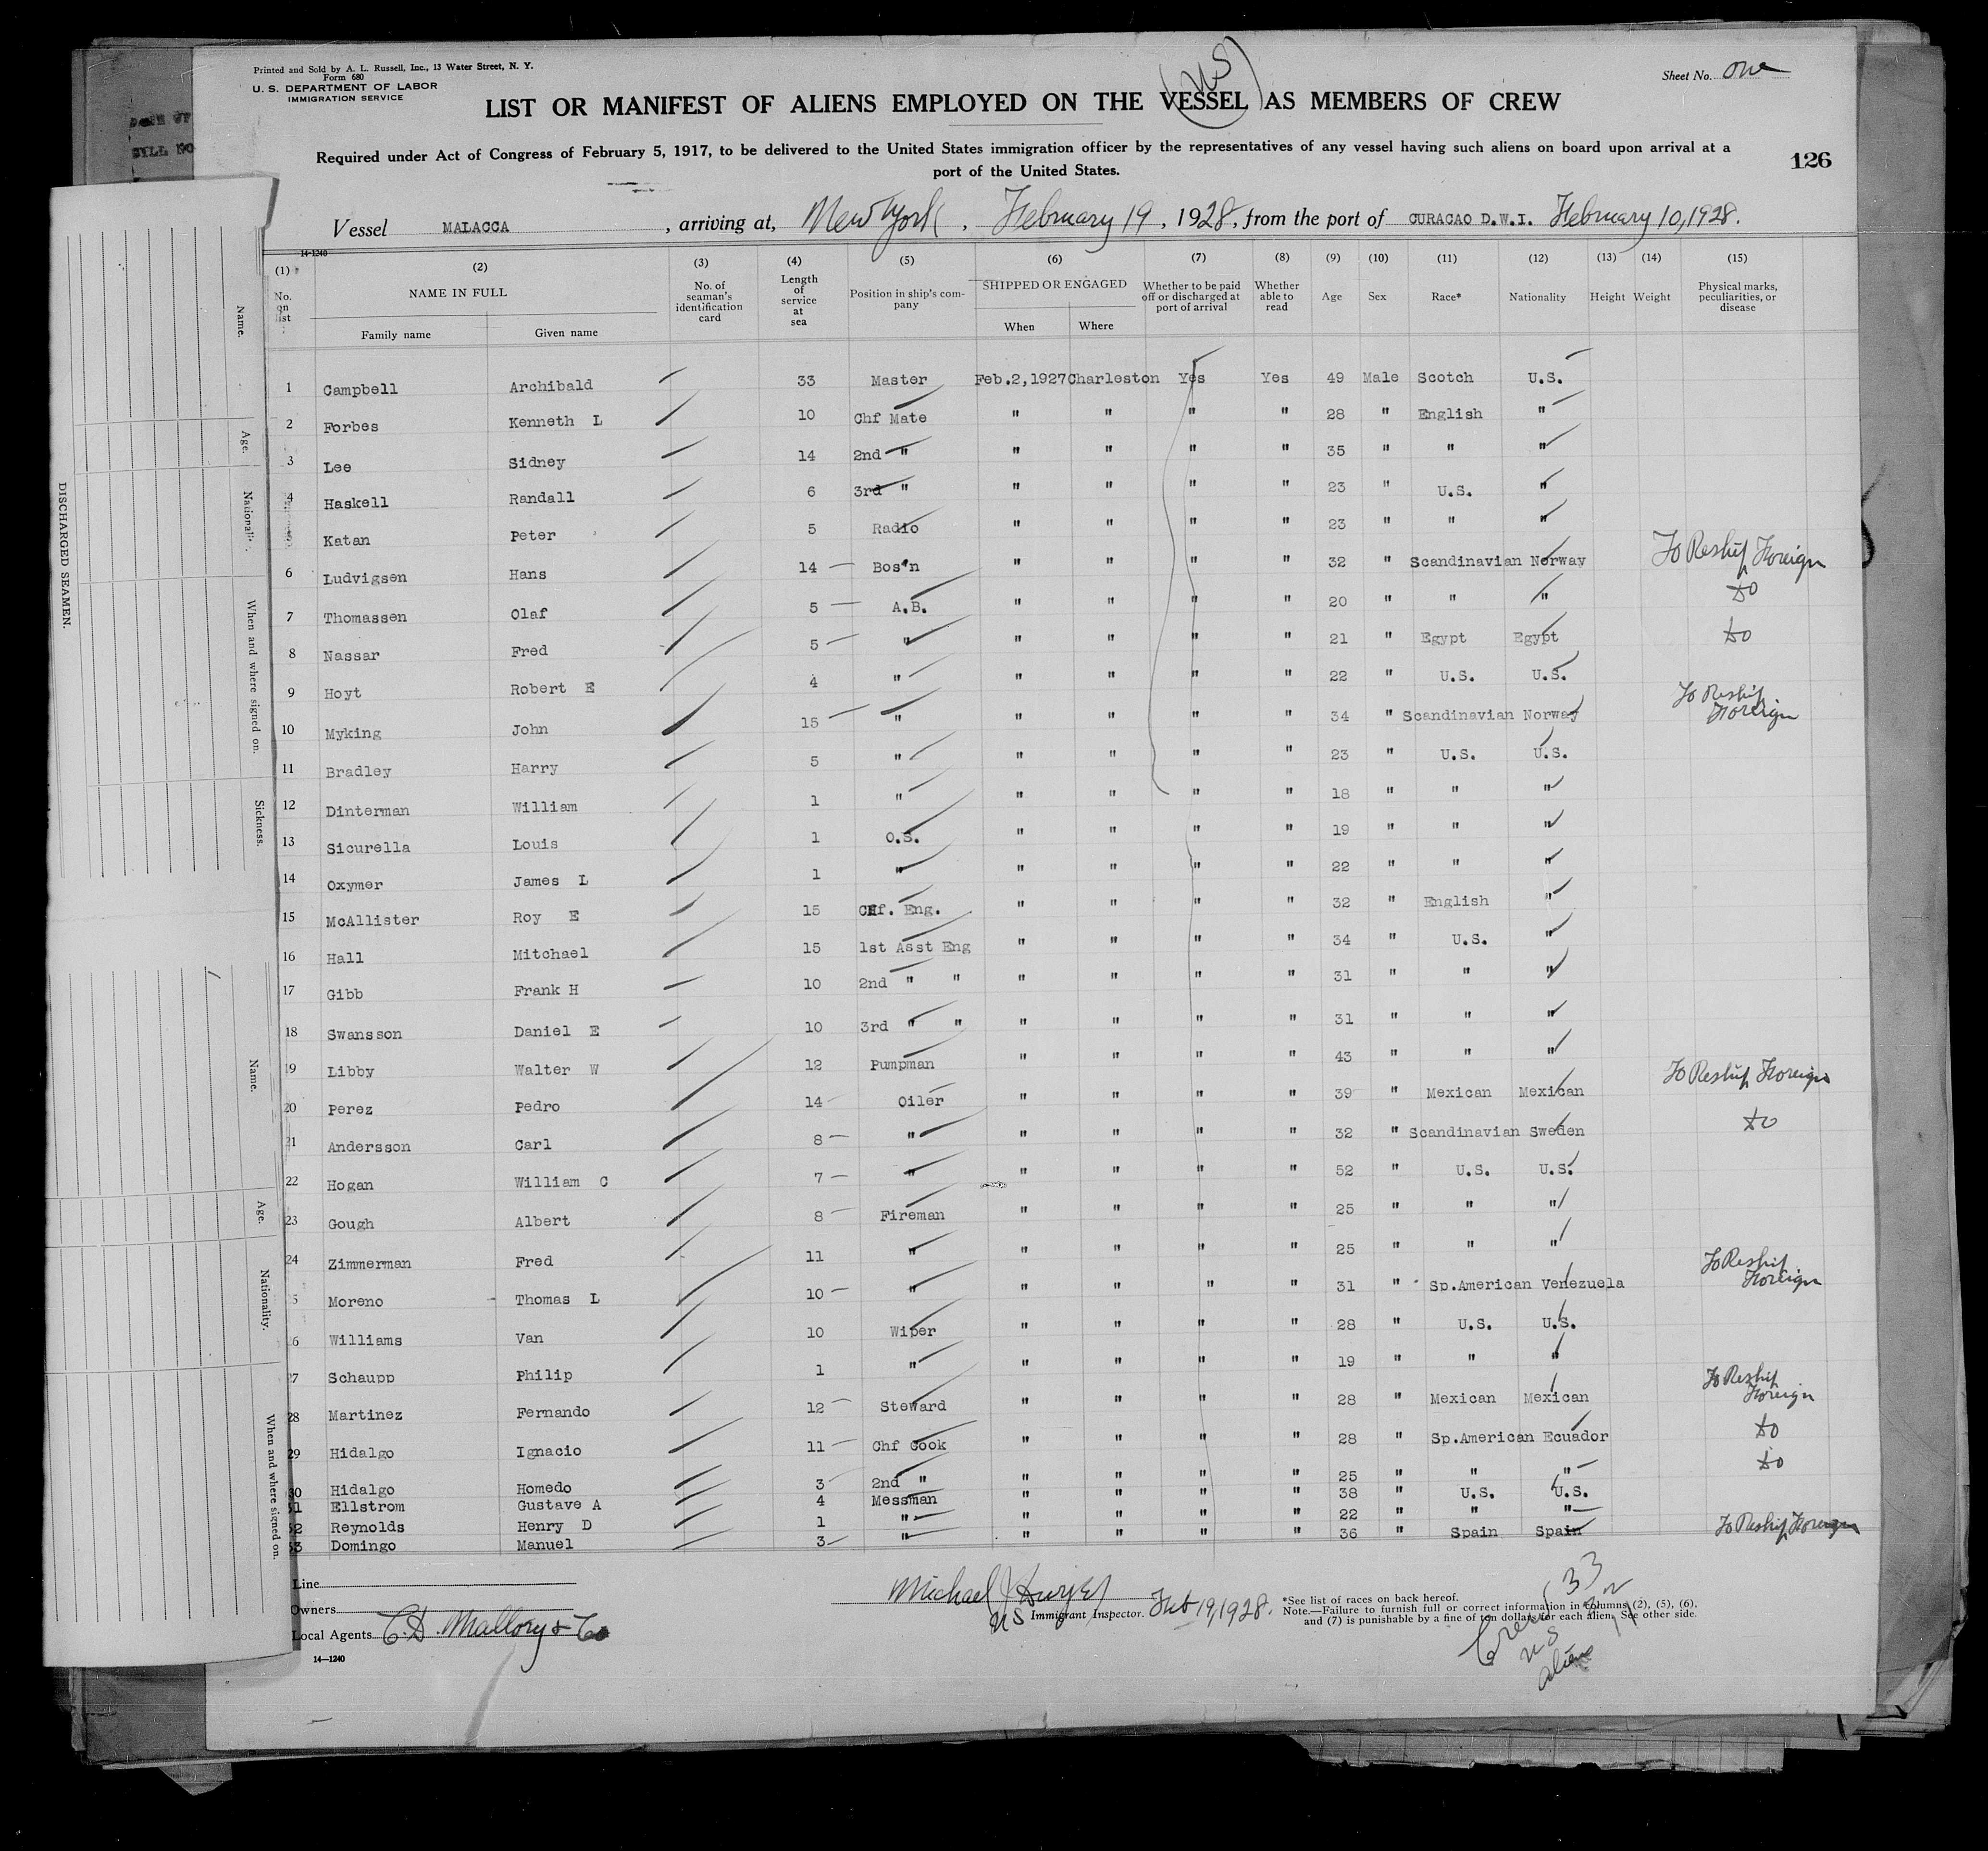 Printed and Sold by A. L. Russell, Inc., 13 Water Street, N. Y.
Form 680
U. S. DEPARTMENT OF LABOR
IMMIGRATION SERVICE
(US)
Sheet No. One
LIST OR MANIFEST OF ALIENS EMPLOYED ON THE VESSEL AS MEMBERS OF CREW
Required under Act of Congress of February 5, 1917, to be delivered to the United States immigration officer by the representatives of any vessel having such aliens on board upon arrival at a
port of the United States.
126
Vessel MALACCA, arriving at, New York, February 19, 1928, from the port of CURACAO D.W.I. February 10, 1928.
14-1240
(1) (2) (3) (4) (5) (6) (7) (8) (9) (10) (11) (12) (13) (14) (15)
No. on list NAME IN FULL Family name Given name No. of seaman's identification card Length of service at sea Position in ship's company SHIPPED OR ENGAGED When Where Whether to be paid off or discharged at port of arrival Whether able to read Age Sex Race* Nationality Height Weight Physical marks, peculiarities, or disease
1 Campbell Archibald 33 Master Feb.2,1927 Charleston Yes Yes 49 Male Scotch U.S.
2 Forbes Kenneth L 10 Chf Mate " " " " 28 " English "
3 Lee Sidney 14 2nd " " " " " 35 " " "
4 Haskell Randall 6 3rd " " " " " 23 " U.S. "
5 Katan Peter 5 Radio " " " " 23 " " "
6 Ludvigsen Hans 14 Bos'n " " " " 32 " Scandinavian Norway To Reship Foreign
7 Thomassen Olaf 5 A.B. " " " " 20 " " " do
8 Nassar Fred 5 " " " " " 21 " Egypt Egypt do
9 Hoyt Robert E 4 " " " " " 22 " U.S. U.S.
10 Myking John 15 " " " " " 34 " Scandinavian Norway To Reship Foreign
11 Bradley Harry 5 " " " " " 23 " U.S. U.S.
12 Dinterman William 1 " " " " " 18 " " "
13 Sicurella Louis 1 O.S. " " " " 19 " " "
14 Oxymer James L 1 " " " " " 22 " " "
15 McAllister Roy E 15 Chf. Eng. " " " " 32 " English "
16 Hall Mitchael 15 1st Asst Eng " " " " 34 " U.S. "
17 Gibb Frank H 10 2nd " " " " " " 31 " " "
18 Swansson Daniel E 10 3rd " " " " " " 31 " " "
19 Libby Walter W 12 Pumpman " " " " 43 " " "
20 Perez Pedro 14 Oiler " " " " 39 " Mexican Mexican To Reship Foreign
21 Andersson Carl 8 " " " " " 32 " Scandinavian Sweden do
22 Hogan William C 7 " " " " " 52 " U.S. U.S.
23 Gough Albert 8 Fireman " " " " 25 " " "
24 Zimmerman Fred 11 " " " " " 25 " " "
5 Moreno Thomas L 10 " " " " " 31 " Sp.American Venezuela To Reship Foreign
26 Williams Van 10 Wiper " " " " 28 " U.S. U.S.
27 Schaupp Philip 1 " " " " " 19 " " "
28 Martinez Fernando 12 Steward " " " " 28 " Mexican Mexican To Reship Foreign
29 Hidalgo Ignacio 11 Chf Cook " " " " 28 " Sp.American Ecuador do
30 Hidalgo Homedo 3 2nd " " " " " 25 " " " do
31 Ellstrom Gustave A 4 Messman " " " " 38 " U.S. U.S.
32 Reynolds Henry D 1 " " " " " 22 " " "
33 Domingo Manuel 3 " " " " " 36 " Spain Spain To Reship Foreign
Line
Owners
Local Agents C. D. Mallory & Co
14—1240
Michael J Dwyer
US Immigrant Inspector. Feb 19, 1928.
*See list of races on back hereof.
Note.—Failure to furnish full or correct information in columns (2), (5), (6),
and (7) is punishable by a fine of ten dollars for each alien. See other side.
Crew 33
US 22
aliens 11
DISCHARGED SEAMEN.
Name.
Age.
Nationality.
When and where signed on.
Sickness.
Name.
Age.
Nationality.
When and where signed on.